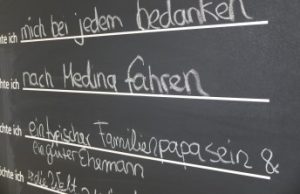 chte ich mich bei jedem bedanken
chte ich nach Medina fahren
chte ich ein frischer Familienpapa sein &
ein guter Ehemann
öchte ich die Welt